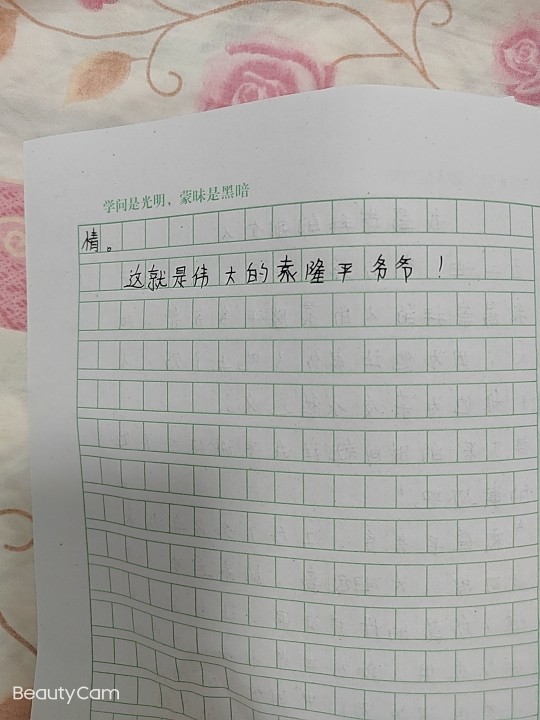 学问是光明，蒙昧是黑暗
情。
这就是伟大的袁隆平爷爷！
BeautyCam